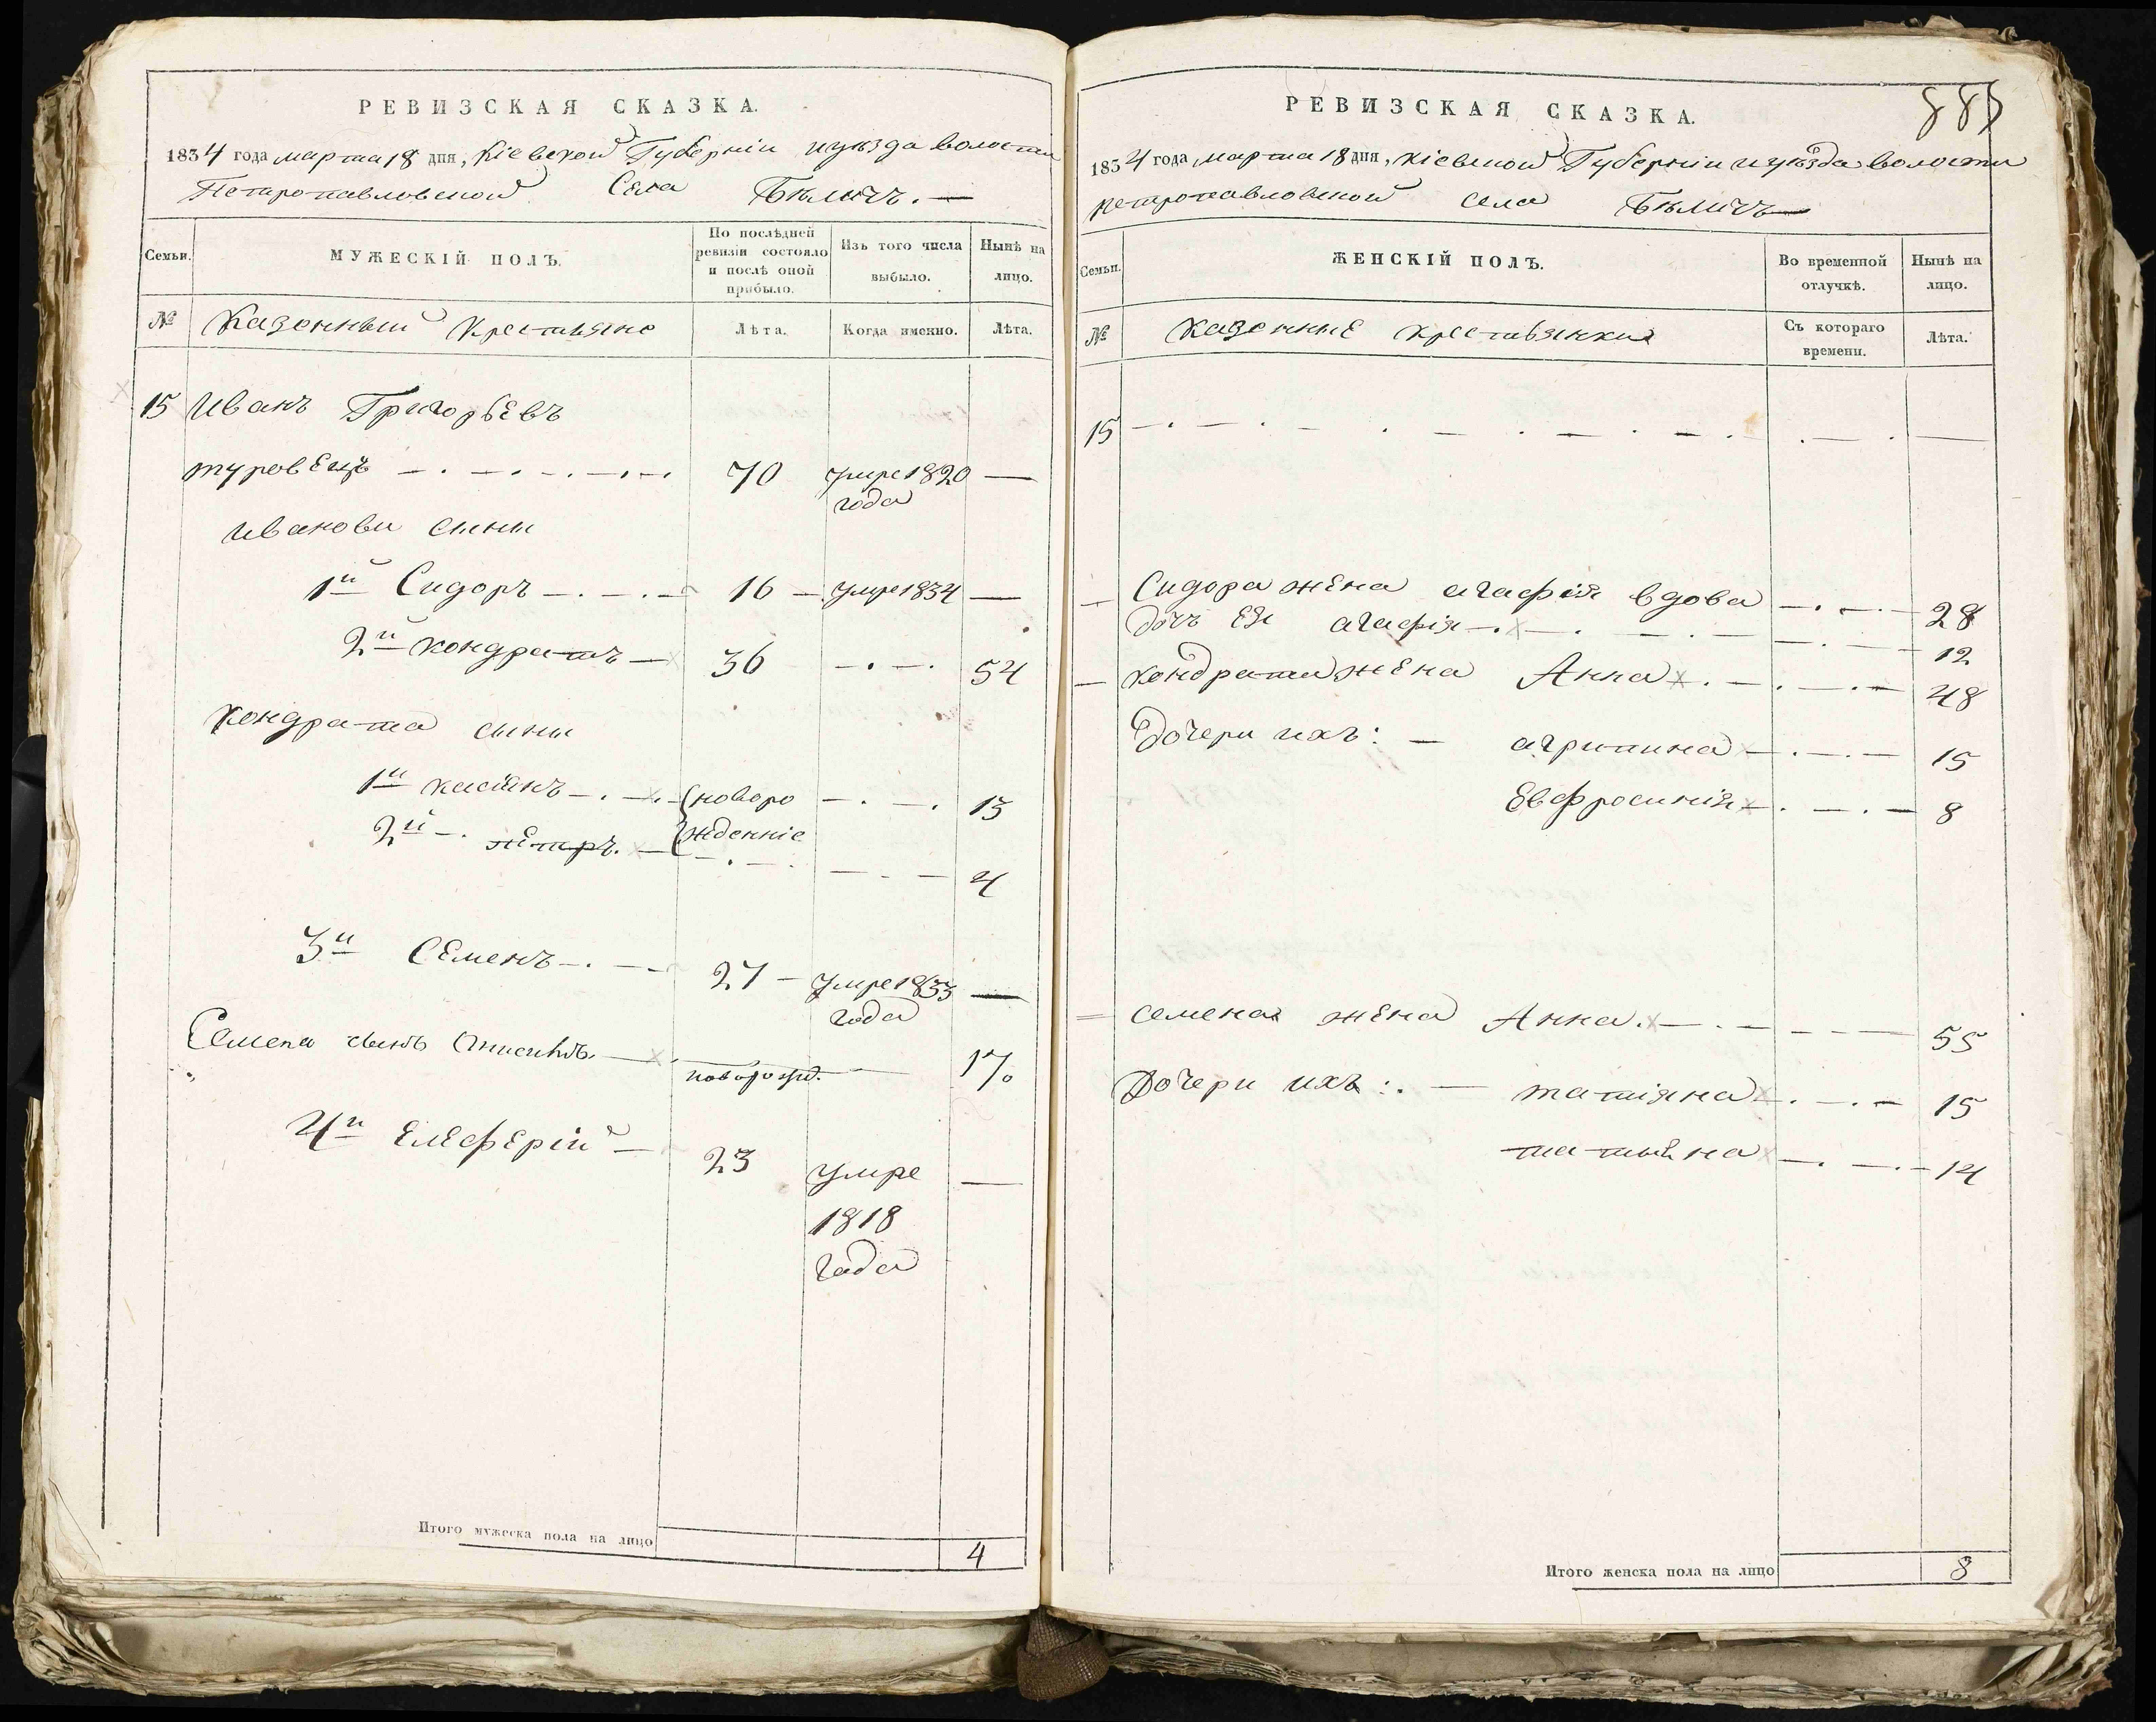 РЕВИЗСКАЯ СКАЗКА.
1834 года марта 18 дня, Кіевской Губерніи и уѣзда волости
Петропавловской Села Бѣличъ. —
Семьи.
МУЖЕСКІЙ ПОЛЪ.
По послѣдней ревизіи состояло и послѣ оной прибыло.
Изъ того числа выбыло.
Нынѣ на лицо.
№ Казенный Крестьяне Лѣта. Когда именно. Лѣта.
15 Иванъ Григорьевъ
туровецъ — . — . — . — . — 70 умре 1820 —
года
Ивановы сыны
1й Сидоръ — . — . — 16 — умре 1834 —
2й Кондратъ — 36 — . — . 54
Кондрата сыны
1й Касіянъ — . — . — новоро — . — . 13
жденніе
2й — . Петръ. — — . — . — . — 4
3й Семенъ — . — — 27 — умре 1833 —
года
Семена сынъ — новорожд. — 17
4й Елеферій — 23 умре —
1818
года
Итого мужеска пола на лицо 4
885
РЕВИЗСКАЯ СКАЗКА.
1834 года марта 18 дня, Кіевской Губерніи и уѣзда волости
Петропавловской села Бѣличъ —
Семьи.
ЖЕНСКІЙ ПОЛЪ.
Во временной отлучкѣ.
Нынѣ на лицо.
№ Казенніе крестьянки Съ котораго времени. Лѣта.
15 — . — . — . — . — . — . — . — . —
— Сидора жена агафія вдова — . — . — 28
дочь Ея агафія — . — . — . — 12
— Кондрата жена Анна . — . — . — 48
Дочери ихъ: — агрипина — . — . — 15
Евфросинія — . — . — 8
= Семена жена Анна. — . — — — — 55
Дочери ихъ: . — татіяна — . — . — 15
татыяна — . — . — 14
Итого женска пола на лицо 8